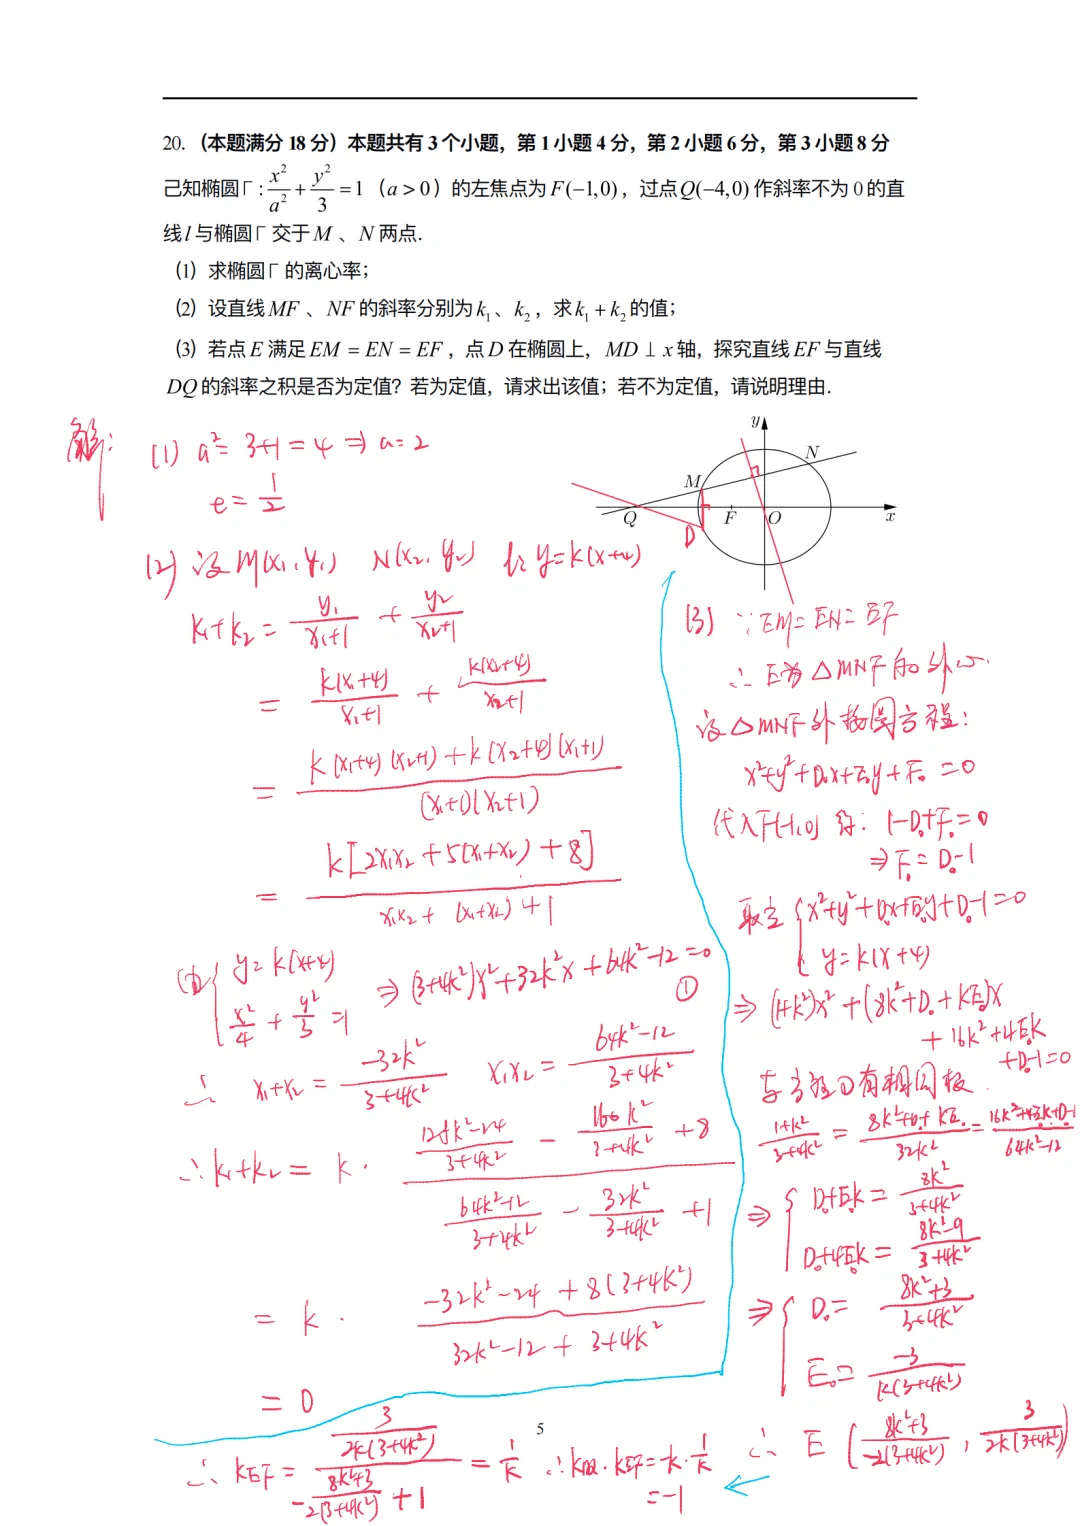 20. （本题满分 18 分）本题共有 3 个小题，第 1 小题 4 分，第 2 小题 6 分，第 3 小题 8 分
己知椭圆Γ: x²/a² + y²/3 = 1（a > 0）的左焦点为 F(−1,0)，过点 Q(−4,0) 作斜率不为 0 的直
线 l 与椭圆Γ 交于 M 、N 两点.
（1）求椭圆Γ 的离心率；
（2）设直线 MF 、NF 的斜率分别为 k₁、k₂，求 k₁ + k₂ 的值；
（3）若点 E 满足 EM = EN = EF，点 D 在椭圆上，MD ⊥ x 轴，探究直线 EF 与直线
DQ 的斜率之积是否为定值？若为定值，请求出该值；若不为定值，请说明理由.
y
N
M
Q
F
O
x
D
解:
(1) a² = 3+1 = 4 ⇒ a = 2
e = 1/2
(2) 设 M(x₁, y₁) N(x₂, y₂) l: y = k(x+4)
k₁+k₂ = y₁/(x₁+1) + y₂/(x₂+1)
= k(x₁+4)/(x₁+1) + k(x₂+4)/(x₂+1)
= [k(x₁+4)(x₂+1) + k(x₂+4)(x₁+1)]/[(x₁+1)(x₂+1)]
= k[2x₁x₂ + 5(x₁+x₂) + 8]/[x₁x₂ + (x₁+x₂) + 1]
由 { y = k(x+4)
x²/4 + y²/3 = 1 ⇒ (3+4k²)x² + 32k²x + 64k²−12 = 0 ①
∴ x₁+x₂ = −32k²/(3+4k²) x₁x₂ = (64k²−12)/(3+4k²)
∴ k₁+k₂ = k · [(128k²−24)/(3+4k²) − 160k²/(3+4k²) + 8]/[(64k²−12)/(3+4k²) − 32k²/(3+4k²) + 1]
= k · [−32k²−24 + 8(3+4k²)]/[32k²−12 + 3+4k²]
= 0
(3) ∵ EM = EN = EF
∴ E为△MNF的外心.
设△MNF外接圆方程:
x²+y²+D₀x+E₀y+F₀ = 0
代入F(−1,0) 得: 1−D₀+F₀ = 0
⇒ F₀ = D₀−1
联立 { x²+y²+D₀x+E₀y+D₀−1 = 0
y = k(x+4)
⇒ (1+k²)x² + (8k²+D₀+kE₀)x
+ 16k²+4E₀k
+D₀−1 = 0
与方程①有相同根.
(1+k²)/(3+4k²) = (8k²+D₀+kE₀)/32k² = (16k²+4E₀k+D₀−1)/(64k²−12)
⇒ { D₀+E₀k = 8k²/(3+4k²)
D₀+4E₀k = (8k²−9)/(3+4k²)
⇒ { D₀ = (8k²+3)/(3+4k²)
E₀ = −3/[k(3+4k²)]
∴ E ( (8k²+3)/[−2(3+4k²)] , 3/[2k(3+4k²)] )
∴ k_EF = {3/[2k(3+4k²)]}/{−(8k²+3)/[2(3+4k²)] + 1} = 1/k ∴ k_DQ · k_EF = −k · 1/k
= −1
5